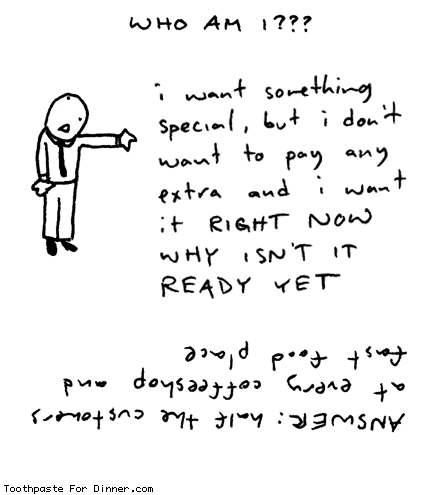 WHO AM I???
i want something
special, but i don't
want to pay any
extra and i want
it RIGHT NOW
WHY ISN'T IT
READY YET
ANSWER: half the customers
at every coffeeshop and
fast food place
Toothpaste For Dinner.com